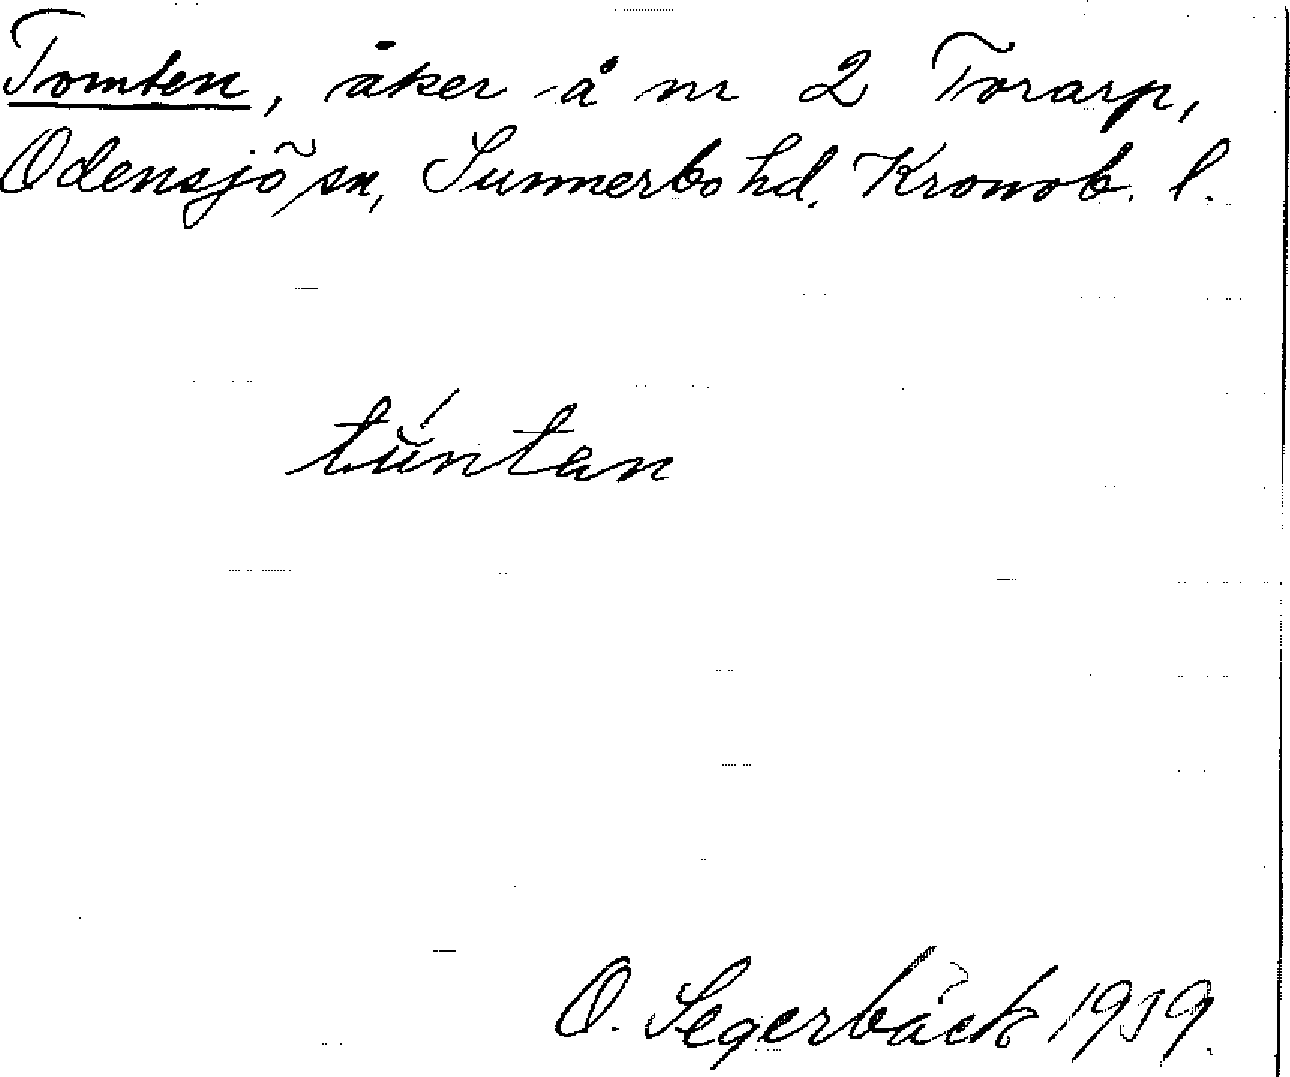 Tomten, åker å nr 2 Torarp,
Odensjö sn, Sunnerbo hd. Kronob. l.
túntan
O. Segerbäck 1919.